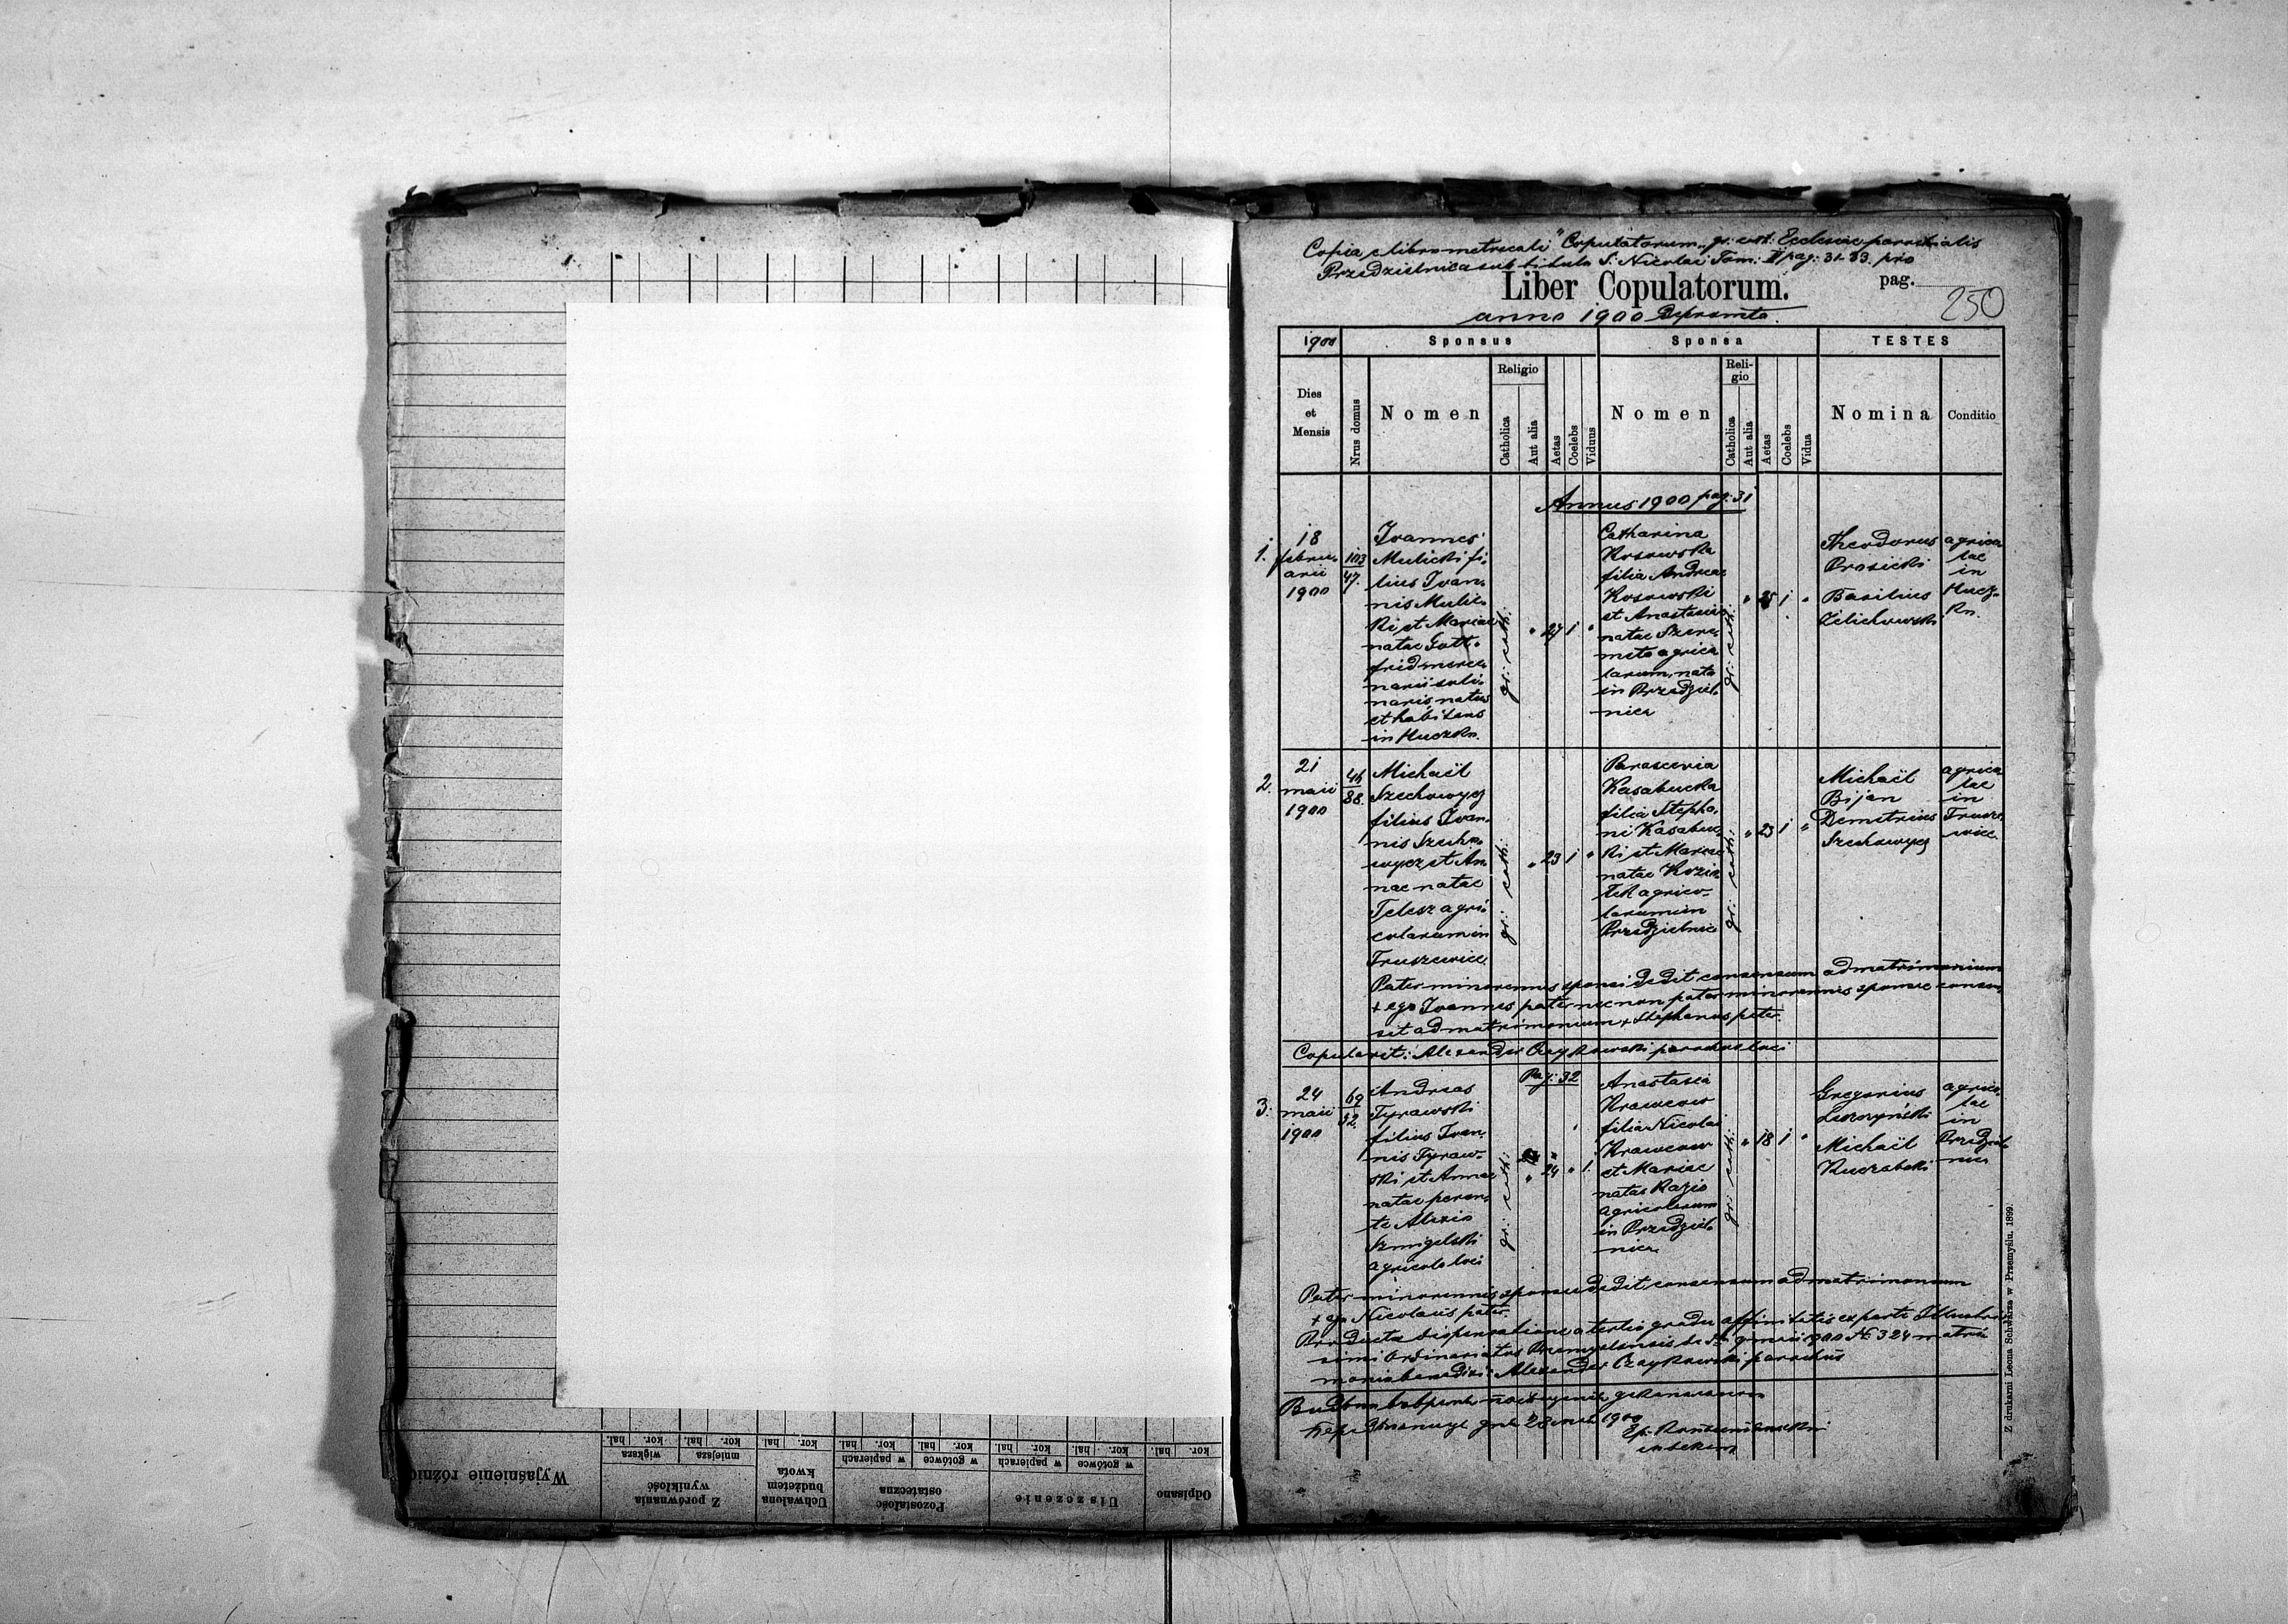 Copia e libro metricali "Copulatorum" gr: cath: Ecclesiae parochialis
Przedzielnica sub titulo S. Nicolai Tom: II pag: 31-33. pro
Liber Copulatorum. pag.
250
anno 1900 Depromta.
1900 Sponsus Sponsa TESTES
Dies et Mensis
Nrus domus
Nomen
Religio
Catholica
Aut alia
Aetas
Coelebs
Viduus
Nomen
Reli-
gio
Catholica
Aut alia
Aetas
Coelebs
Vidua
Nomina
Conditio
Annus 1900 pag: 31
1.
18
febru-
arii
1900
103
47.
Ioannes
Mulicki fi-
lius Ioan-
nis Mulic-
ki et Mariae
natae Gott-
frid merce-
narii
naris, natus
et habitans
in Huczko.
gr: cath:
" 27 1 "
Catharina
Kosowska
filia Andreae
Kosowski
et Anastasiae
natae Szere-
meta agrico
larum, nata
in Przedziel-
nica
gr: cath:
" 25 1 "
Theodorus
Prosicki
Basilius
Zelichowski
agrico
lae
in
Hucz-
ko.
2.
21
maii
1900
46
88.
Michaël
Szechowycz
filius Ioan-
nis Szecho-
wycz et An-
nae natae
Telesz agri-
colarum in
Truszewice.
gr: cath:
" 23 1 "
Parascevia
Kasabucka
filia Stepha-
ni Kasabuc-
ki et Mariae
natae Kozio
łek agrico-
larum in
Przedzielnica
gr: cath:
" 23 1 "
Michaël
Bijan
Demetrius
Szechowycz
agrico
lae
in
Trusze-
wice.
Pater minorennis sponsi dedit consensum ad matrimonium
+ ego Ioannes pater nec non pater minorennis sponsae consen-
sit ad matrimonium + Stephanus pater.
Copulavit: Alexander Czaykowski parochus loci
Pag: 32
3.
24
maii
1900
69
52.
Andreas
Tyrawski
filius Ioan-
nis Tyraw-
ski et Annae
natae paren-
te Alexio
Szmigelski
agricola loci
gr: cath:
" 24 " 1.
Anastasia
Krawcow
filia Nicolai
Krawcow
et Mariae
natae Kazio
agricolarum
in Przedziel-
nica
gr: cath:
" 18 1 "
Gregorius
Leszczyński
Michaël
Kuczabski
agrico-
lae
in
Przedziel-
nica
Pater minorennis sponsae dedit consensum ad matrimonium
+ ego Nicolaus pater.
Producta dispensatione a tertio gradu affinitatis ex parte Illustris-
simi Ordinariatus Premysliensis de 1900 N: 324 matri-
monio benedixi: Alexander Czaykowski parochus
дня 28 мая 1900
Z drukarni Leona Schwarza w Przemyślu. 1899.
Wyjaśnienie różnic
Z porównania
wynikłość
większa
mniejsza
kor. hal. kor. hal.
Uchwalona
budżetem
kwota
kor. hal.
Pozostałość
ostateczna
w gotówce
w papierach
kor. hal. kor. hal.
Uiszczenie
w gotówce
w papierach
kor. hal. kor. hal.
Odpisano
kor. hal.